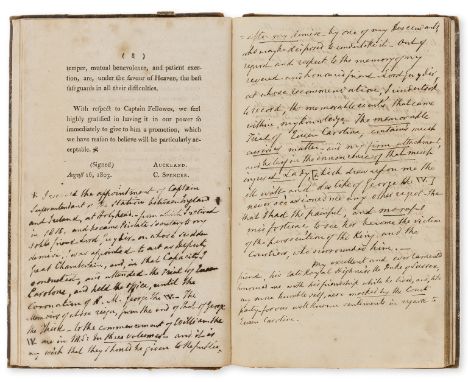 ( 8 )
temper, mutual benevolence, and patient exer-
tion, are, under the favour of Heaven, the best
safeguards in all their difficulties.
With respect to Captain Fellowes, we feel
highly gratified in having it in our power so
immediately to give to him a promotion, which
we have reason to believe will be particularly ac-
ceptable.
(Signed) AUCKLAND.
August 16, 1803. C. SPENCER.
I received the appointment of Captain
Superintendant of the Station between England
and Ireland, at Holyhead - from which I retired
in 1818. and became Private Secretary to my
noble friend Lord Gwydir, on whose sudden
demise, I was appointed to act as Deputy
Great Chamberlain, and, in that capacity I
conducted, and attended the Trial of Queen
Caroline, and held the office, until the
Coronation of H. M. George the IV. The
Memoirs of whose reign, from the end of that of George
the Third - to the commencement of William the
IV are in M.S. in three volumes - and it is
my wish that they should be given to the public.
after my demise - by one of my descendants
who may be disposed to undertake it. Out of
regard and respect to the memory of my
revered and honoured friend Lord Gwydir,
at whose recommendation, I undertook
to record, the memorable events, that came
within my knowledge. The memorable
Trial of Queen Caroline, contains much
matter - and my firm attachment,
and belief in the innocence of that much
Lady, which drew upon me the
and dislike of George the IV.
never occasioned me any other regret than
that I had the painful, and
misfortune to see her become the victim
of the persecution of the King and the
Courtiers, who surrounded him.
My excellent and ever lamented
friend, his late Royal Highness the Duke of Sussex,
honored me with his friendship while he lived, and, like
my more humble self, were marked by the Court
party, for our well known sentiments in regard to
Queen Caroline.